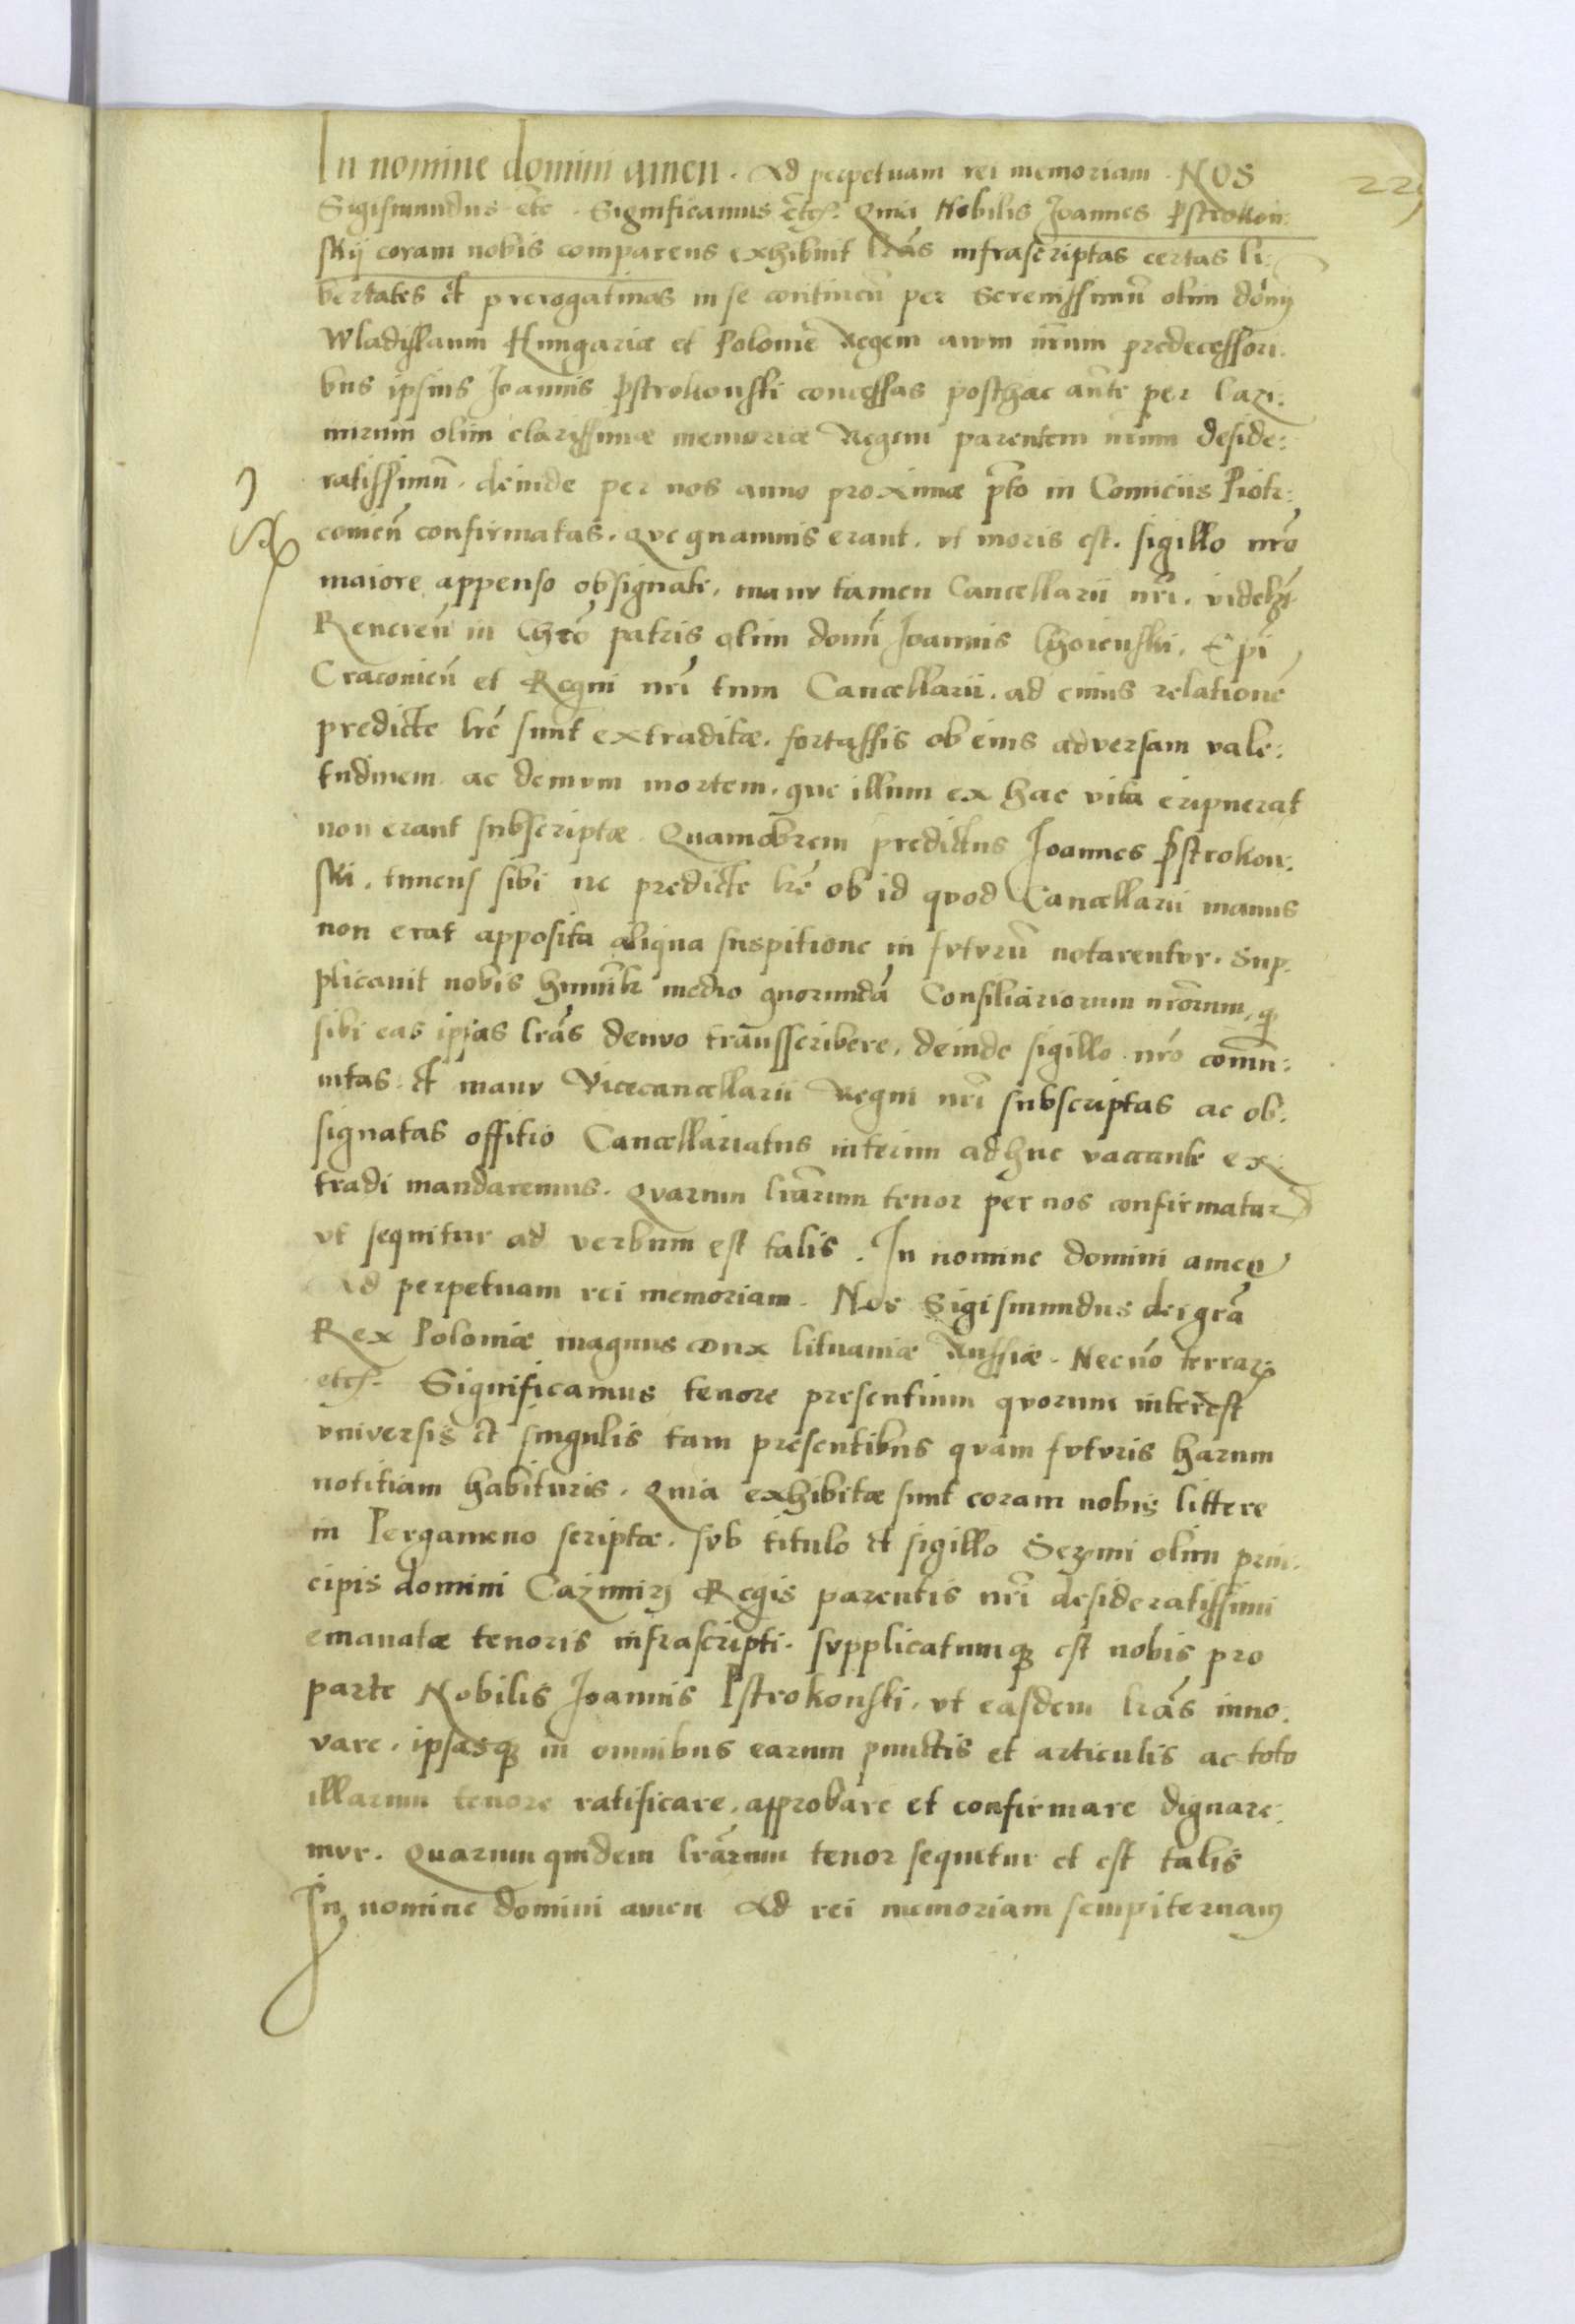 In nomine domini amen. Ad perpetuam rei memoriam. NOS
Sigismundus etc. Significamus etc. Quia Nobilis Joannes Pstrokon:
skij coram nobis comparens exhibuit lrãs infrascriptas certas li:
bertates et prerogatiuas in se continẽn per Serenissimũ olim dõnij
Wladislaum Hungariæ et Poloniẽ Regem auum nr̃um predecessori:
bus ipsius Joannis Pstrokonski concessas posthac aũte per Cazi:
mirum olim clarissimæ memoriæ Regem parentem nr̃um deside:
ratissimũ. deinde per nos anno proximæ pr̃to in Comiciis Piotr:
couieñ confirmatas. Que quamuis erant. vt moris est. sigillo nrõ
maiore appenso obsignate. manv tamen Cancellarii nri. videlzt
Reuereñ in Chrõ patris olim domĩ Joannis Choienski. Epi
Cracouieñ et Regni nri tum Cancellarii. ad cuius relationẽ
predicte lrẽ sunt extraditæ. fortassis ob eius adversam vale:
tudinem ac demvm mortem. que illum ex hac vita eripuerat
non erant subscriptæ. Quamobrem predictus Joannes Pstrokon:
ski. timens sibi ne predicte lrẽ ob id quod Cancellarii manus
non erat apposita aliqua suspitione in fvtvrũ notarentvr. Sup:
plicauit nobis humilr̃ medio quorundã Consiliariorum nrõrum. qr
sibi eas ipsas lrãs denvo trãnsscribere. deinde sigillo nrõ comũ:
nitas et manv Vicecancellarii Regni nri subscriptas ac ob:
signatas offitio Cancellariatus interim adhuc vacante ex:
tradi mandaremus. Quarum lrãrum tenor per nos confirmatur
vt sequitur ad verbum est talis. In nomine domini amen
Ad perpetuam rei memoriam. Nos Sigismundus dei grã
Rex Poloniæ magnus Dux lituaniæ Russiæ. Necnõ terrarũ
etc. Significamus tenore presentium quorum interest
vniversis et singulis tam presentibus quam fvtvris harum
notitiam habituris. Quia exhibitæ sunt coram nobis littere
in Pergameno scriptæ. svb titulo et sigillo Serz̃mi olim prin:
cipis domini Cazimirj Regis parentis nri desideratissimi
emanatæ tenoris infrascripti. svpplicatumq3 est nobis pro
parte Nobilis Joannis Pstrokonski. vt easdem lrãs inno:
vare. ipsasq3 in omnibus earum punctis et articulis ac toto
illarum tenore ratificare. approbare et confirmare dignare:
mvr. Quarum quidem lrãrum tenor sequitur et est talis
In nomine domini amen Ad rei memoriam sempiternam